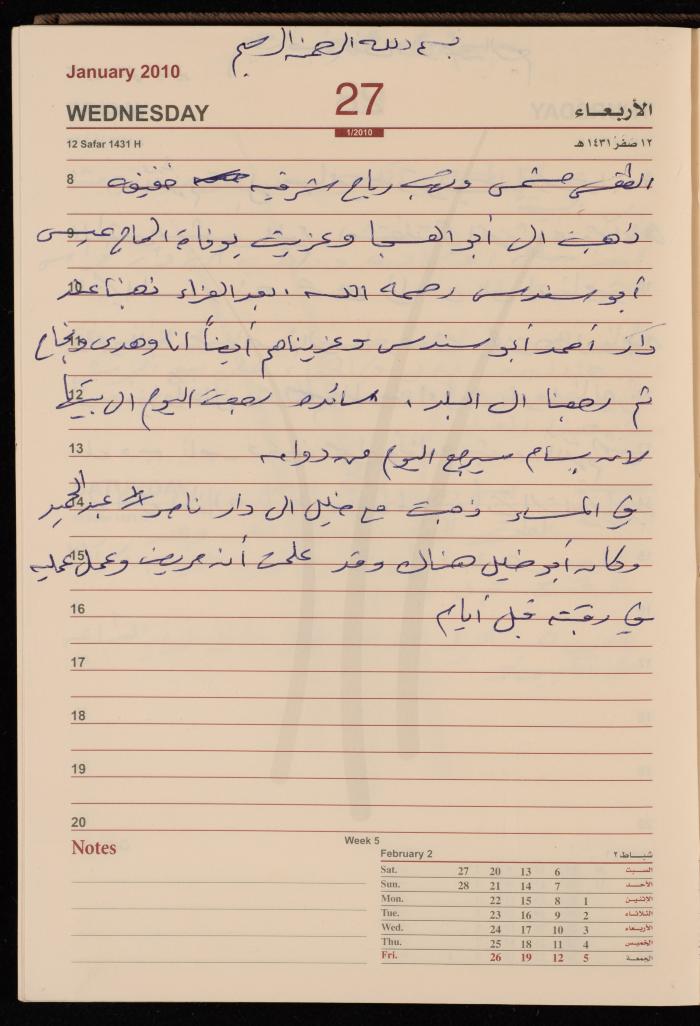 بسم الله الرحمن الرحيم
January 2010
WEDNESDAY 27 الأربعـاء
1/2010
12 Safar 1431 H ١٢ صَفَر ١٤٣١ هـ
8 الطقس مشمس وتهب رياح شرقيه خفيفه
9 ذهبت الى أبو الهيجا وعزيت بوفاة الحاج عيسى
10 أبو سندس رحمه الله . بعد العزاء ذهبنا عند
11 دار أحمد أبو سندس وعزيناهم أيضاً انا وهدى ونجاح
12 ثم رجعنا الى البلد . سائده رجعت اليوم الى بيتها
13 لانه بسام سيرجع اليوم من دوامه
14 في المساء ذهبت مع خليل الى دار ناصر عبد الحميد
15 وكان أبو خليل هناك وقد علمت أنه مريض وعمل عمليه
16 في رقبته قبل أيام
17
18
19
20
Notes
Week 5
February 2 شبـاط ٢
Sat. 27 20 13 6 السبت
Sun. 28 21 14 7 الأحد
Mon. 22 15 8 1 الإثنين
Tue. 23 16 9 2 الثلاثاء
Wed. 24 17 10 3 الأربعاء
Thu. 25 18 11 4 الخميس
Fri. 26 19 12 5 الجمعة